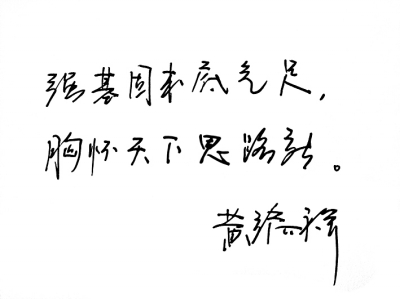 强基固本底气足，
胸怀天下思路新。